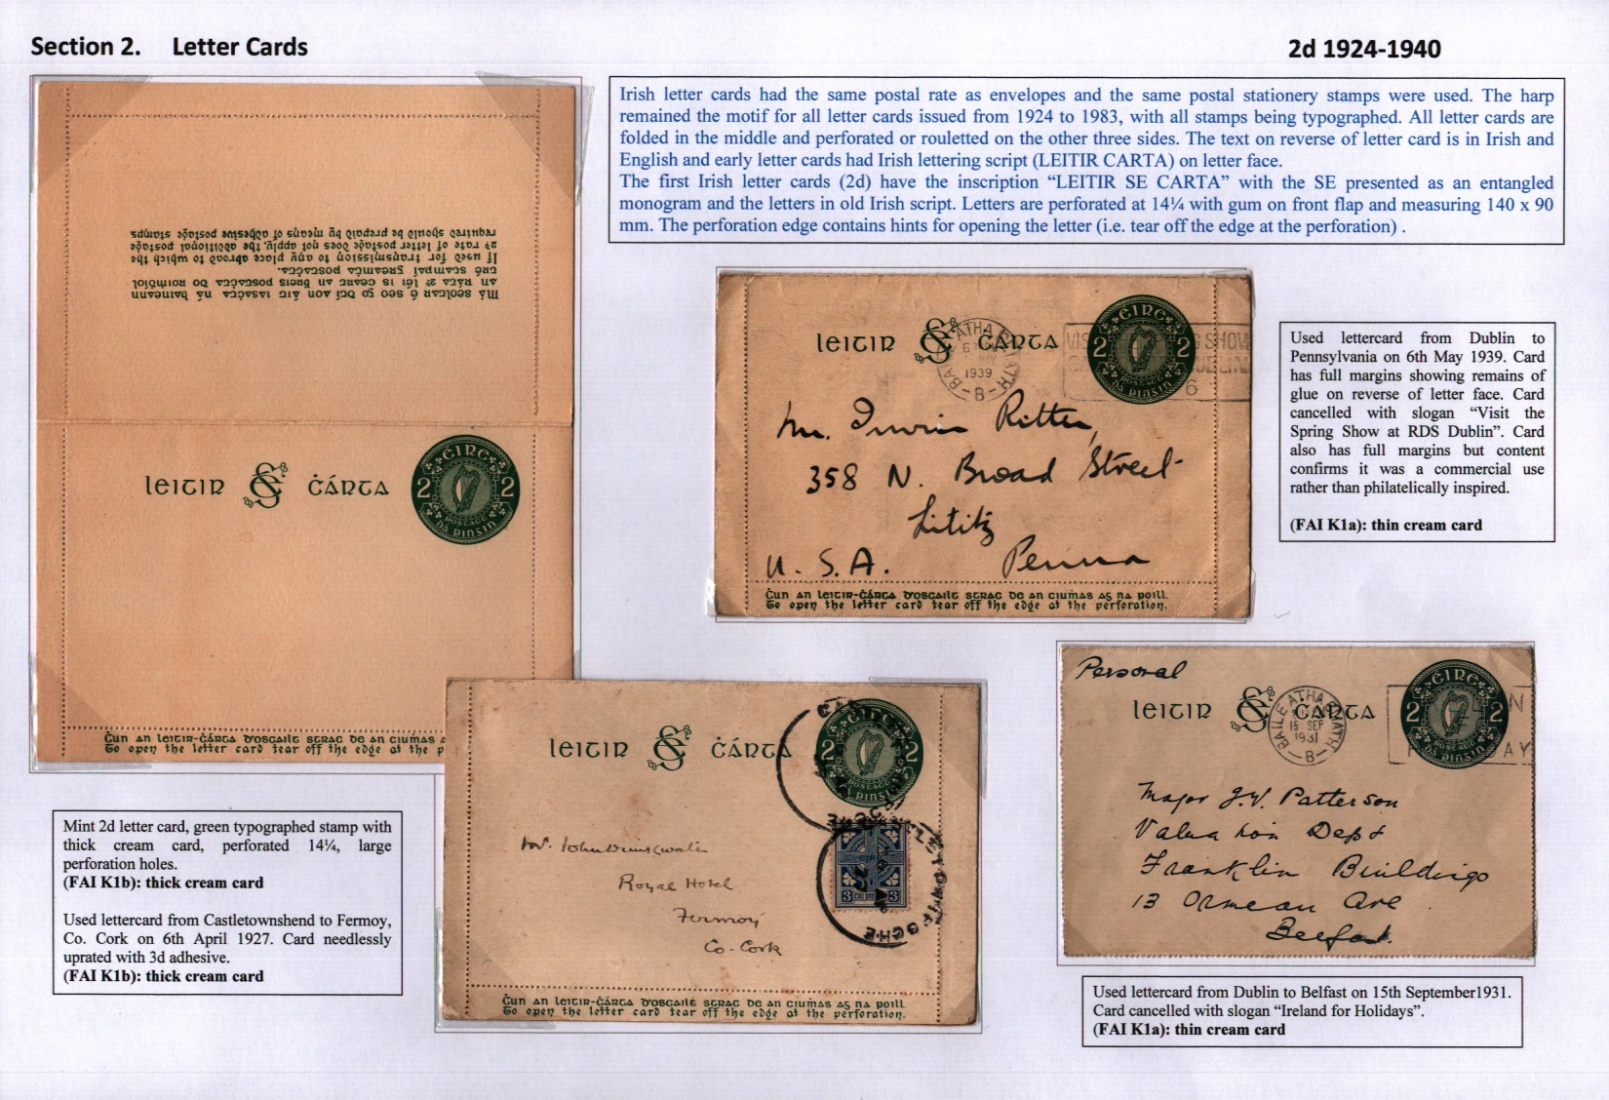 Section 2. Letter Cards
2d 1924-1940
Irish letter cards had the same postal rate as envelopes and the same postal stationery stamps were used. The harp
remained the motif for all letter cards issued from 1924 to 1983, with all stamps being typographed. All letter cards are
folded in the middle and perforated or rouletted on the other three sides. The text on reverse of letter card is in Irish and
English and early letter cards had Irish lettering script (LEITIR CARTA) on letter face.
The first Irish letter cards (2d) have the inscription “LEITIR SE CARTA” with the SE presented as an entangled
monogram and the letters in old Irish script. Letters are perforated at 14¼ with gum on front flap and measuring 140 x 90
mm. The perforation edge contains hints for opening the letter (i.e. tear off the edge at the perforation) .
Má seoltar é seo go dtí aon áit iasachta ná baineann
an ráta 2d léi is ceart an bhreis postachta do roimhdhíol
tré stampaí greamuithe postachta.
If used for transmission to any place abroad to which the
2d rate of letter postage does not apply, the additional postage
required should be prepaid by means of adhesive postage stamps
leitir SE ċárta
éire
2 2
postage
dá pinsin
Ċun an leitir-ċárta d'oscailt strac de an ciumas
To open the letter card tear off the edge at the p
leitir SE ċárta
éire
2 2
postage
dá pinsin
BAILE ATHA CLIATH
6
1939
B
VIS SHOW
6
Mr. Irwin Ritter,
358 N. Broad Street
Lititz
U. S. A. Penna
Ċun an leitir-ċárta d'oscailt strac de an ciumas as na poill.
To open the letter card tear off the edge at the perforation.
Used lettercard from Dublin to
Pennsylvania on 6th May 1939. Card
has full margins showing remains of
glue on reverse of letter face. Card
cancelled with slogan “Visit the
Spring Show at RDS Dublin”. Card
also has full margins but content
confirms it was a commercial use
rather than philatelically inspired.
(FAI K1a): thin cream card
leitir SE ċárta
éire
2 2
postage
dá pinsin
3 3
Mr. John Drinkwater
Royal Hotel
Fermoy
Co. Cork
Ċun an leitir-ċárta d'oscailt strac de an ciumas as na poill.
To open the letter card tear off the edge at the perforation.
Personal
leitir SE ċárta
éire
2 2
postage
dá pinsin
BAILE ATHA CLIATH
15 SEP
1931
B
Major J.V. Patterson
Valuation Dept
Franklin Buildings
13 Ormeau Ave
Belfast.
Mint 2d letter card, green typographed stamp with
thick cream card, perforated 14¼, large
perforation holes.
(FAI K1b): thick cream card
Used lettercard from Castletownshend to Fermoy,
Co. Cork on 6th April 1927. Card needlessly
uprated with 3d adhesive.
(FAI K1b): thick cream card
Used lettercard from Dublin to Belfast on 15th September1931.
Card cancelled with slogan “Ireland for Holidays”.
(FAI K1a): thin cream card